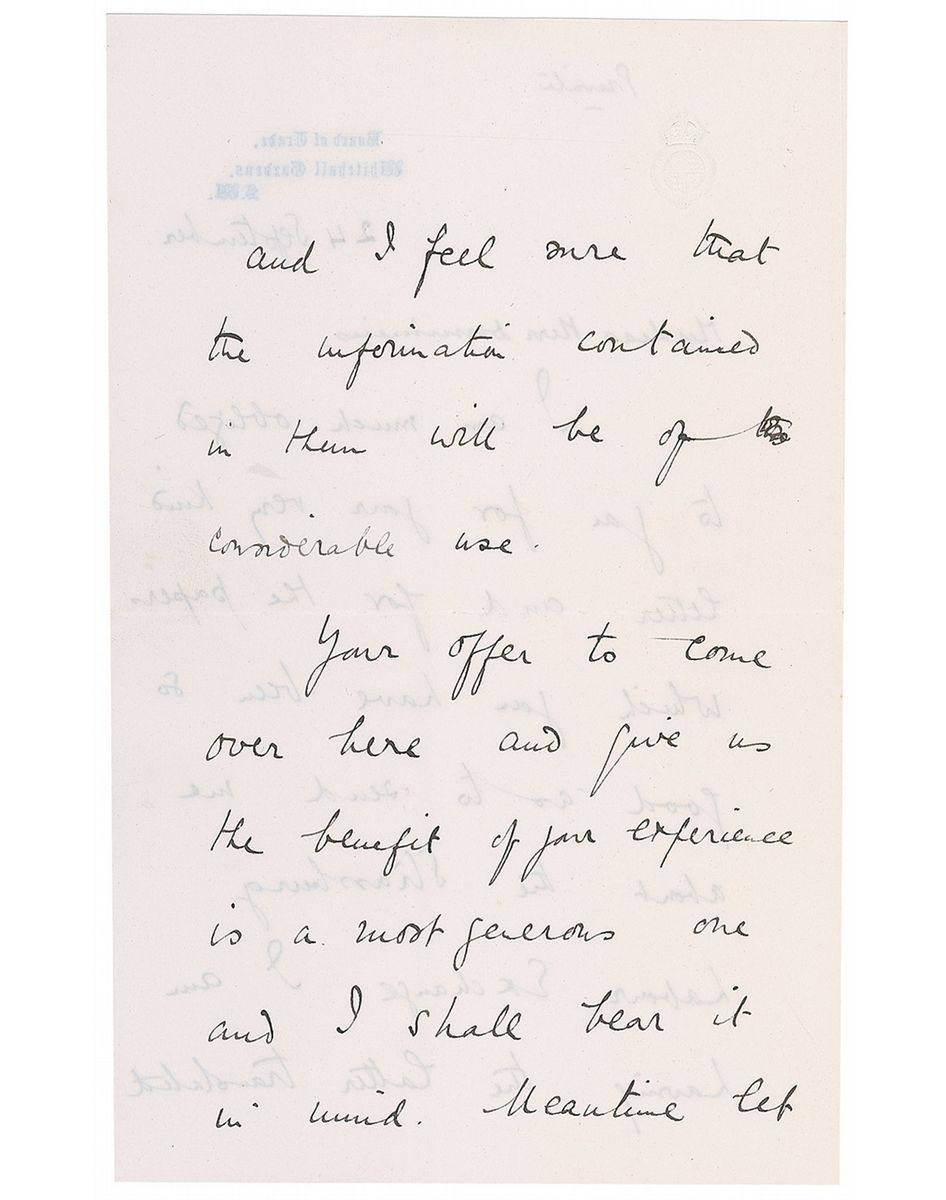 and I feel sure that
the information contained
in them will be of
considerable use.
Your offer to come
over here and give us
the benefit of your experience
is a most generous one
and I shall bear it
in mind. Meantime let